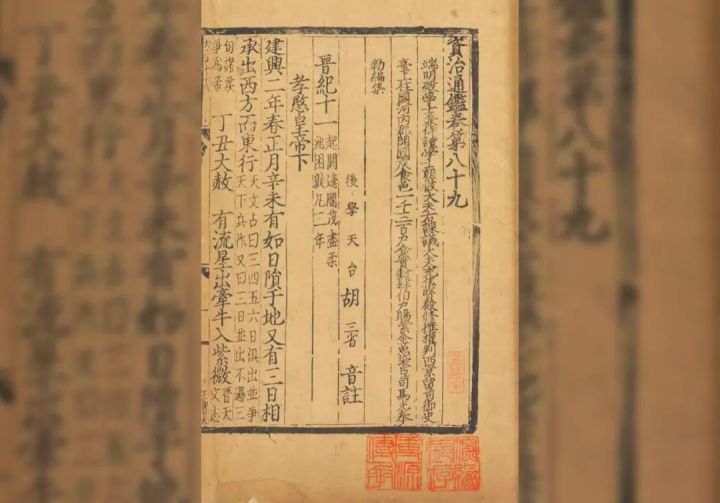 資治通鑑卷第八十九
端明殿學士兼侍讀學士朝散大夫右諫議大夫充集賢殿修撰權判西京留司御史
臺上柱國河內郡開國公食邑二千二百戶食實封肆伯戶賜紫金魚袋臣司馬光奉
勑編集
後學天台胡三省音註
晉紀十一 起閼逢閹茂盡柔兆困敦凡三年
孝愍皇帝下
建興二年春正月辛未有如日隕于地又有三日相
承出西方而東行 天文占曰三四五六日俱出並爭天下兵作又曰三日並出不過三
旬諸侯爭為帝 丁丑大赦 有流星出牽牛入紫微 晉天文志